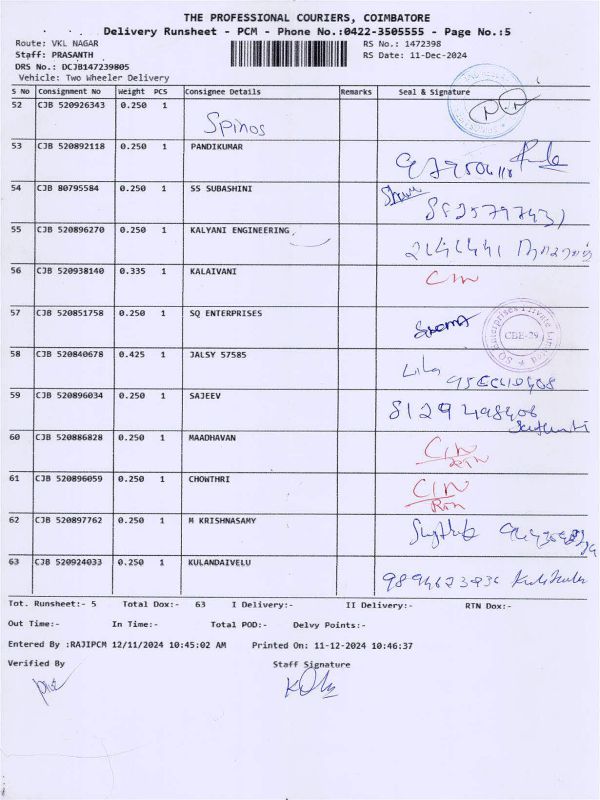 THE PROFESSIONAL COURIERS, COIMBATORE
Delivery Runsheet - PCM - Phone No.:0422-3505555 - Page No.:5
Route: VKL NAGAR RS No.: 1472398
Staff: PRASANTH RS Date: 11-Dec-2024
DRS No.: DCJB147239805
Vehicle: Two Wheeler Delivery
S No Consignment No Weight PCS Consignee Details Remarks Seal & Signature
52 CJB 520926343 0.250 1 Spinos
53 CJB 520892118 0.250 1 PANDIKUMAR
54 CJB 80795584 0.250 1 SS SUBASHINI
55 CJB 520896270 0.250 1 KALYANI ENGINEERING
56 CJB 520938140 0.335 1 KALAIVANI CIN
57 CJB 520851758 0.250 1 SQ ENTERPRISES SQ Enterprises Private Limited CBE-29
58 CJB 520840678 0.425 1 JALSY 57585
59 CJB 520896034 0.250 1 SAJEEV
60 CJB 520886828 0.250 1 MAADHAVAN CIN
61 CJB 520896059 0.250 1 CHOWTHRI CIN
RTN
62 CJB 520897762 0.250 1 M KRISHNASAMY
63 CJB 520924033 0.250 1 KULANDAIVELU
Tot. Runsheet:- 5 Total Dox:- 63 I Delivery:- II Delivery:- RTN Dox:-
Out Time:- In Time:- Total POD:- Delvy Points:-
Entered By :RAJIPCM 12/11/2024 10:45:02 AM Printed On: 11-12-2024 10:46:37
Verified By Staff Signature